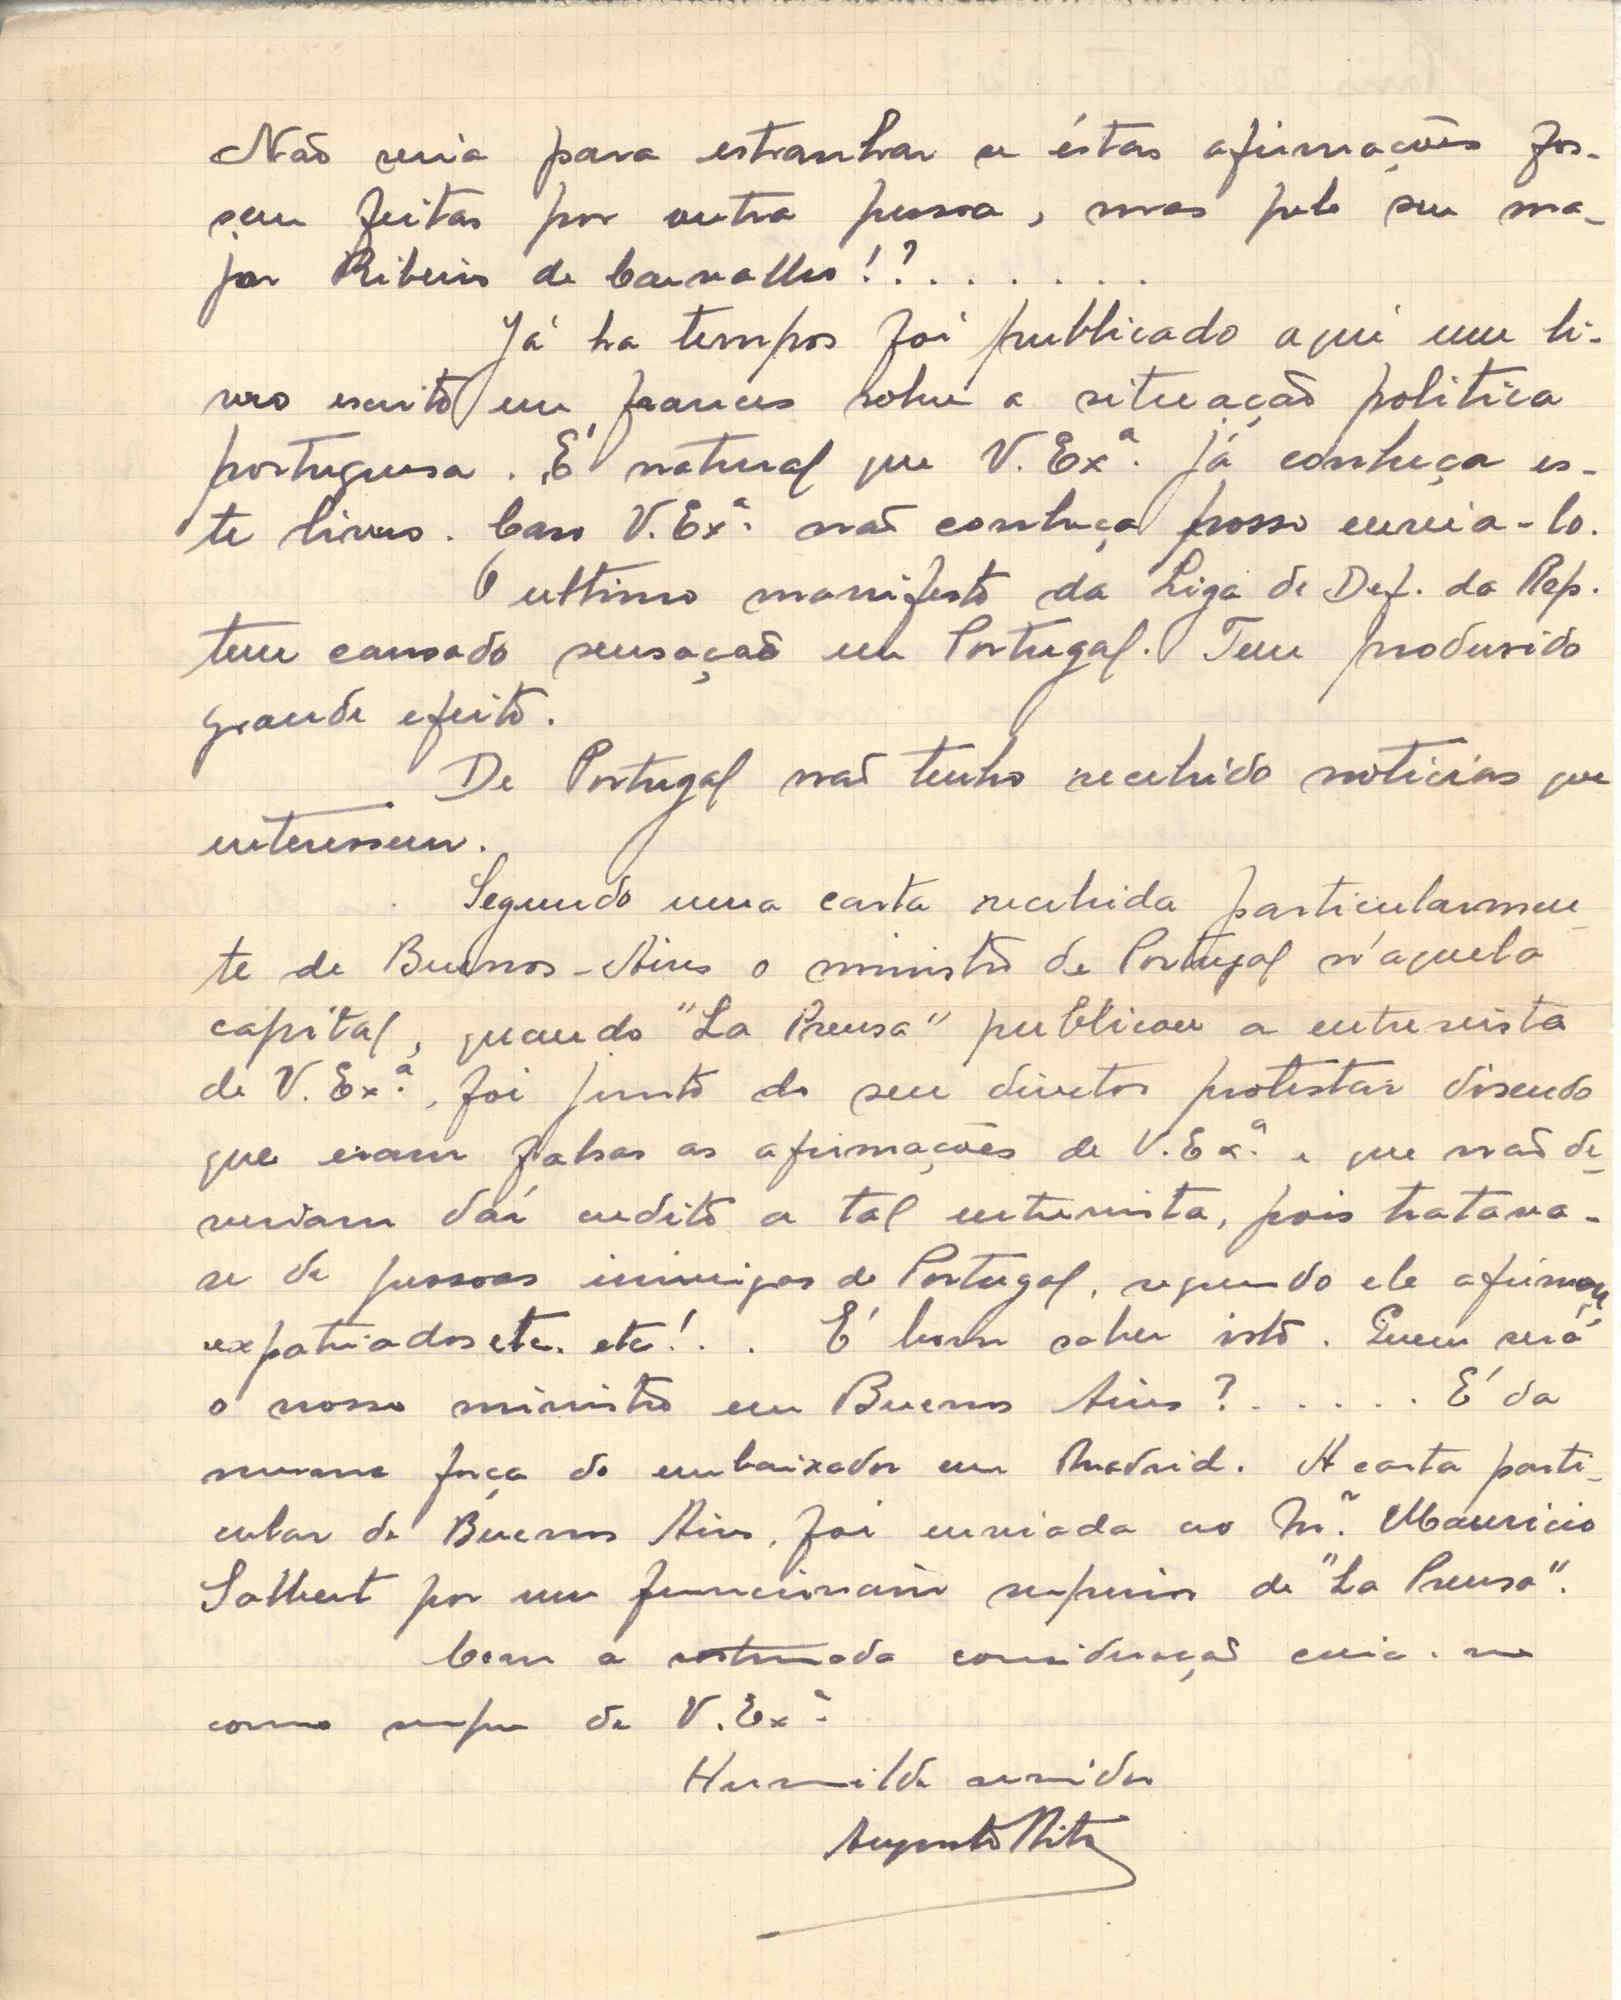 Não seria para estranhar se éstas afirmações fos-
sem feitas por outra pessoa, mas pelo sen ma-
jor Ribeiro de Carvalho!?.......
Já ha tempos foi publicado aqui um li-
vro escrito em frances sobre a situação politica
portuguesa. É natural que V. Exª. já conheça es-
te livro. Caso V. Exª. não conheça posso envia-lo.
O ultimo manifesto da Liga de Def. da Rep.
tem causado sensação em Portugal. Tem produsido
grande efeito.
De Portugal não tenho recebido noticias que
interessem.
Segundo uma carta recebida particularmen-
te de Buenos-Aires o ministro de Portugal n'aquela
capital, quando "La Prensa" publicou a entrevista
de V. Exª., foi junto do seu diretor protestar disendo
que eram falsas as afirmações de V. Exª. e que não de-
veriam dár credito a tal entrevista, pois tratava-
se de pessoas inimigas de Portugal, segundo ele afirmou
expatriados etc. etc!.. É bom saber isto. Quem será
o nosso ministro em Buenos Aires?...... É da
mesma força do embaixador em Madrid. A carta parti-
cular de Buenos Aires, foi enviada ao Mr. Mauricio
Salbert por um funcionario superior de "La Prensa".
Com a estimada consideração creia-me
como sempre de V. Exª.
Humilde servidor
Augusto Rita